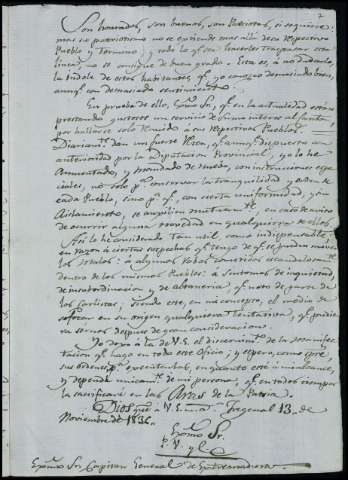 Son honrados, son buenos, son Patriotas, si se quiere;
mas su patriotismo no se extiende mas alla de su respectivo
Pueblo y Termino; y todo lo qe. sea hacerles traspasar esta
linea, no se consigue de buen grado. Esta es, à no dudarlo,
la indole de estos habitantes, qe. yo conozco demasiado bien,
aunqe. con demasiado sentimiento.
En prueba de ello, Exmo. Sr, qe. en la actualidad estan
prestando gustosos un servicio de sumo interes al
por hallarse solo à sus respectivos Pueblos.
Diariamte. dan un fuerte Reten, qe. aunqe. dispuesto con
anterioridad por la Diputacion Provincial, yo lo he
Aumentado, y mandado de nuevo, con instrucciones espe-
ciales, no solo pa. conservar la tranquilidad y orden de
cada Pueblo, sino pa. qe. con cierta uniformidad, y sin
Aislamiento, se auxilien mutuamte. en caso de
de ocurrir alguna novedad en qualquiera de ellos.
Asi lo he considerado tan util como indispensable
en razon à ciertas sospechas qe. tengo de qe. se puedan
los : à algunos robos cometidos escandalosamte.
dentro de los mismos Pueblos: à sintomas de inquietud,
de insubordinacion y de altaneria qe. noto de parte de
los Carlistas; siendo este, en mi concepto, el medio de
sofocar en su origen qualquiera tentativa, qe. pudie-
ra sernos despues de gran consideracion.
Yo dexo à la de V.E. el discernimto. de la manifes-
tacion qe. hago en todo este Oficio, y espero, como
sus ordenes pa. executarlas, en quanto esté à mi alcance,
y dependa unicamte. de mi persona, qe. en todos tiempos
la sacrificaré en las Aras de la Patria.
Dios gue. à V.E. m. a. Fregenal 13, de
Noviembre de 1836.
Exmo. Sr.
Exmo. Sr. Capitan General de Extremadura.